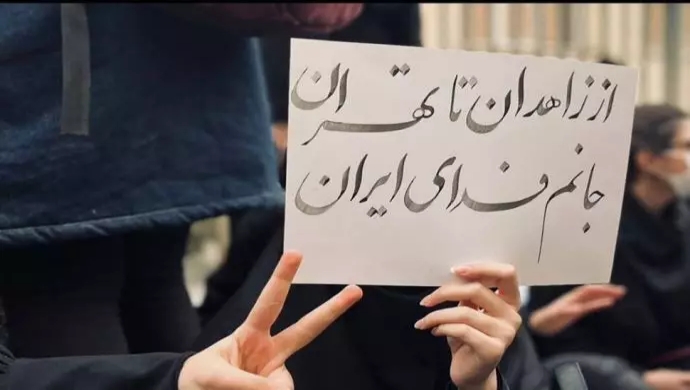 از زاهدان تا تهران
جانم فدای ایران